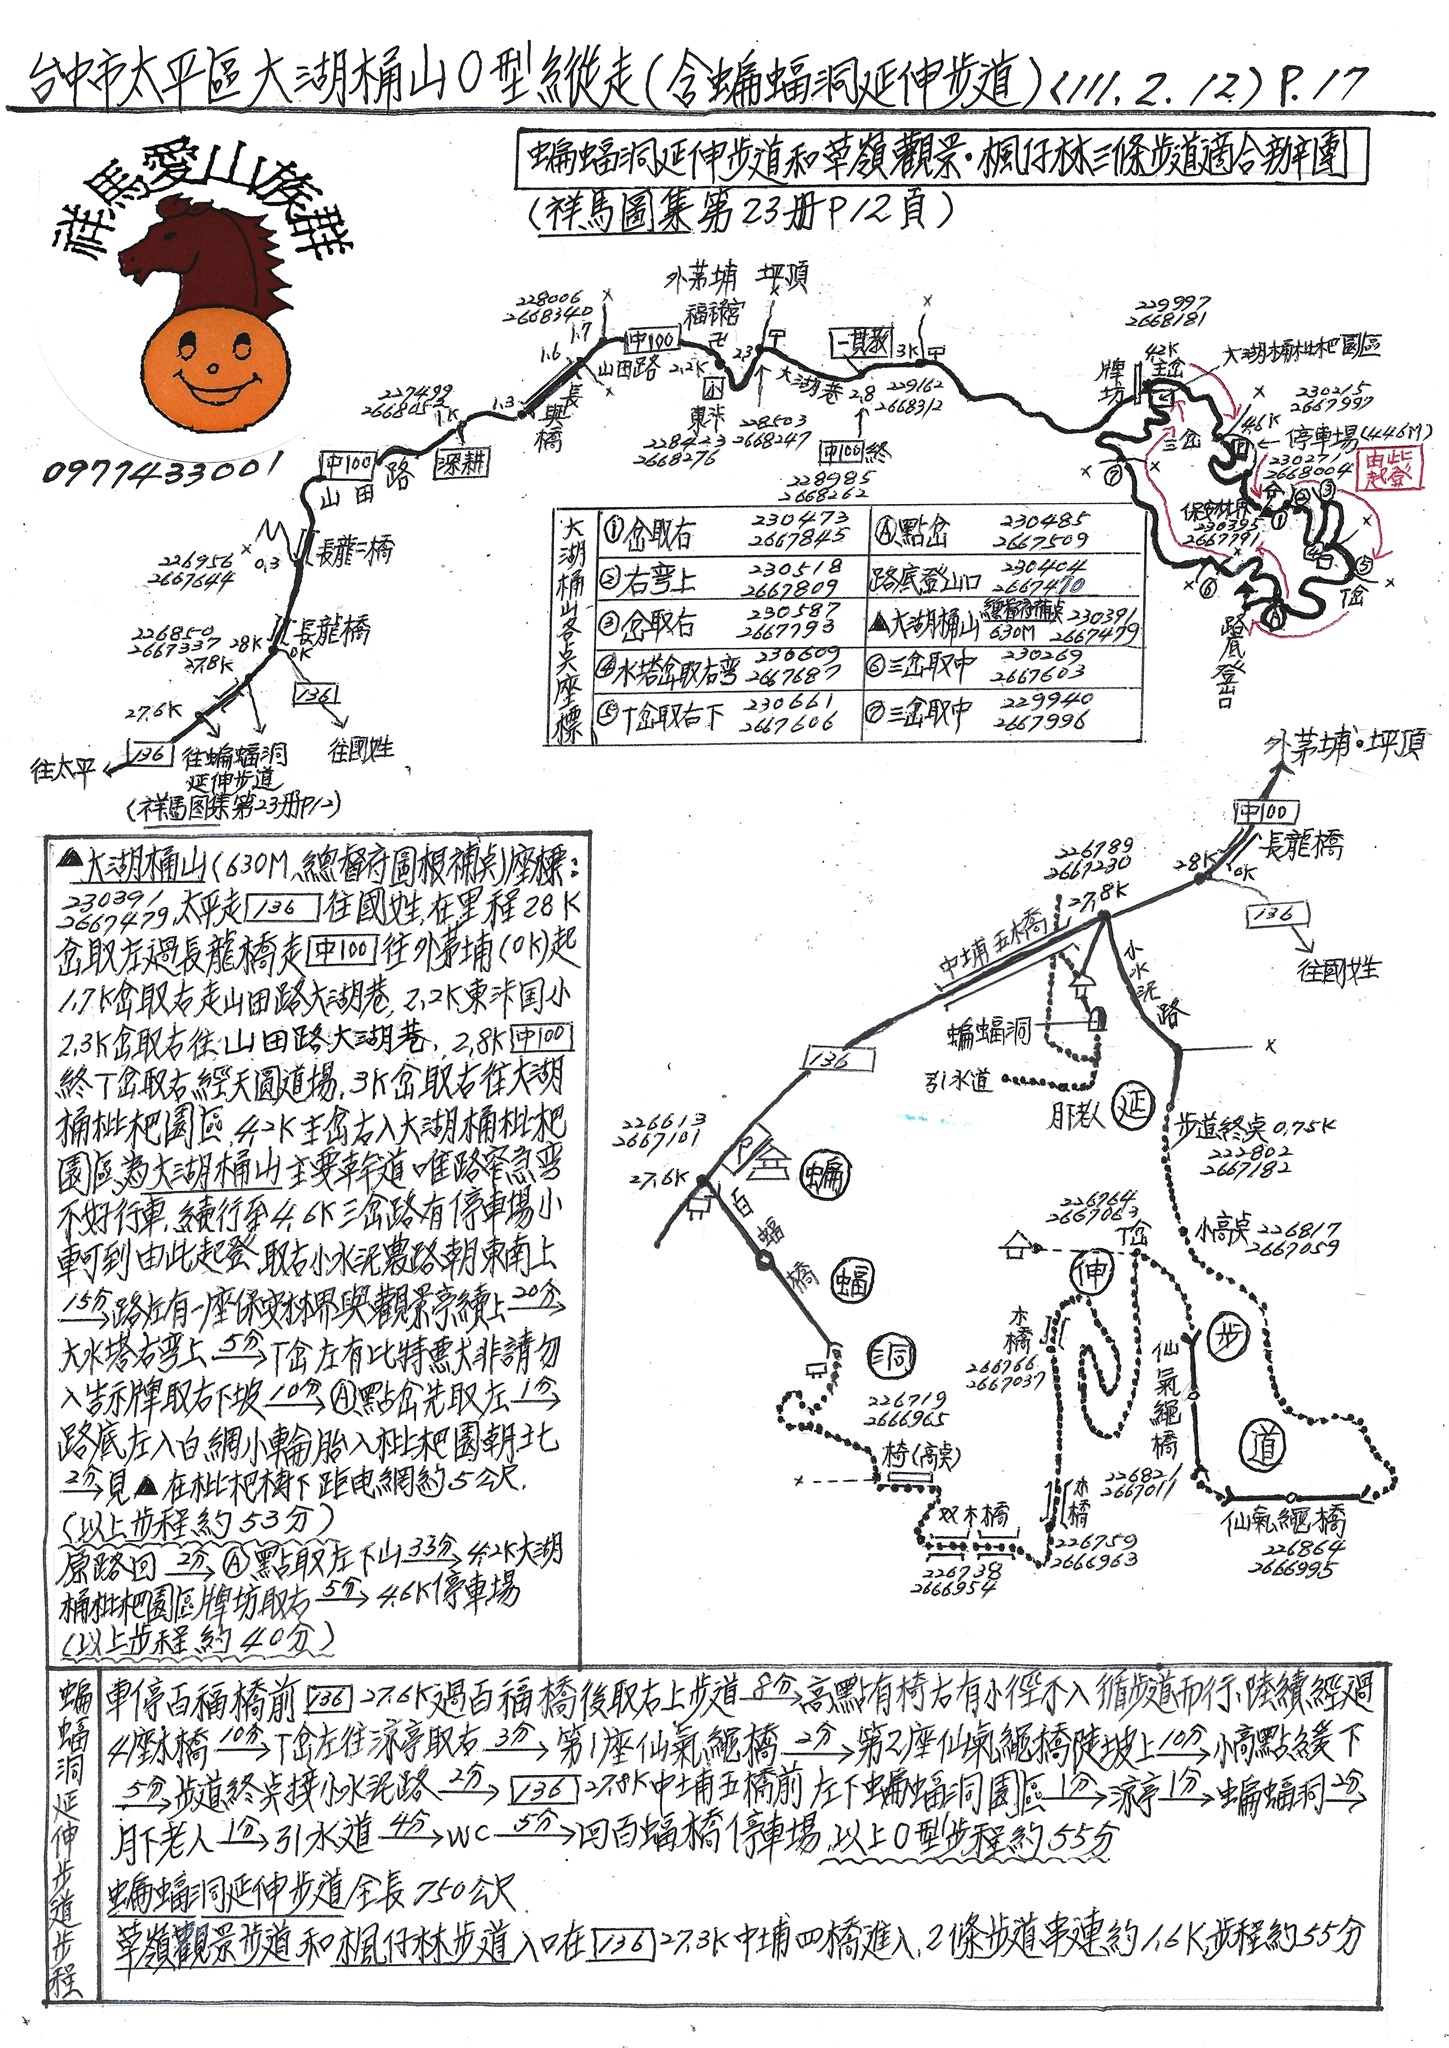 台中市太平區大湖桶山O型縱走(含蝙蝠洞延伸步道)<111.2.12>P.17
祥馬愛山族群
0977433001
蝙蝠洞延伸步道和草嶺觀景·楓仔林三條步道適合辦團
(祥馬圖集第23册P12頁)
外茅埔 坪頂
228006
2668340
1.7
1.6
中100
山田路
福祿宮
卍
2.2K
2.3
小
東汴
228423
2668276
228503
2668247
大湖巷
一貫教
2.8
3K
229162
2668312
中100終
228985
2668262
229997
2668181
4.2K
主岔
牌坊
大湖桶枇杷園區
230215
2667997
4.6K
P
停車場(446M)
230271
2668004
由此起登
三岔
保安林界
230395
2667791
岔
①
②
③
④
⑤
T岔
⑥
⑦
Ⓐ
路底登山口
227499
2668452
1K
深耕
1.3
長興橋
中100
山田路
226956
2667644
0.3
長龍二橋
226850
2667337
28K
0K
長龍橋
27.8K
136
27.6K
136
往太平
往蝙蝠洞
延伸步道
(祥馬图集第23册P12)
往國姓
大湖桶山各点座標
①岔取右 230473 2667845
Ⓐ點岔 230485 2667509
②右彎上 230518 2667809
路底登山口 230404 2667470
③岔取右 230587 2667793
▲大湖桶山 總督府補点 630M 230391 2667479
④水塔岔取右彎 230609 2667687
⑥三岔取中 230269 2667603
⑤T岔取右下 230661 2667606
⑦三岔取中 229940 2667996
▲大湖桶山(630M、總督府圖根補点)座標:
230391
2667479.太平走136往國姓,在里程28K
岔取左過長龍橋走中100往外茅埔(0K)起
1.7K岔取右走山田路大湖巷,2.2K東汴国小
2.3K岔取右往山田路大湖巷,2.8K中100
終T岔取右經天圓道場.3K岔取右往大湖
桶枇杷園區,4.2K主岔右入大湖桶枇杷
園區為大湖桶山主要幹道唯路窄急彎
不好行車,續行至4.6K三岔路有停車場小
車可到由此起登,取右小水泥農路朝東南上
15分→路左有一座保安林界與觀景亭續上20分→
大水塔右彎上5分→T岔左有比特惡犬非請勿
入告示牌取右下坡10分→Ⓐ點岔先取左1分→
路底左入白網小輪胎入枇杷園朝北
2分→見▲在枇杷樹下距电網約5公尺.
(以上步程約53分)
原路回2分→Ⓐ點取左下山33分→4.2K大湖
桶枇杷園區牌坊取右5分→4.6K停車場
(以上步程約40分)
外茅埔·坪頂
中100
長龍橋
28K
0K
136
往國姓
226789
2667230
27.8K
中埔五橋
小水泥路
蝙蝠洞
引水道
月下老人
136
226613
2667101
27.6K
P
百蝠橋
蝙蝠洞延伸步道
步道終点0.75K
222802
2667182
小高点 226817
2667059
226764
2667063
T岔
木橋
226766
2667037
仙氣繩橋
226821
2667011
仙氣繩橋
226864
2666995
226719
2666965
椅(高点)
双木橋
226738
2666954
木橋
226759
2666963
蝙蝠洞延伸步道步程
車停百福橋前136 27.6K過百福橋後取右上步道8分→高點有椅右有小徑不入循步道而行、陸續經過
4座木橋10分→T岔左往涼亭取右3分→第1座仙氣繩橋2分→第2座仙氣繩橋陡坡上10分→小高點緩下
5分→步道終点接小水泥路2分→136 27.8K中埔五橋前左下蝙蝠洞園區1分→涼亭1分→蝙蝠洞2分→
月下老人1分→引水道4分→WC5分→回百蝠橋停車場,以上O型步程約55分
蝙蝠洞延伸步道全長750公尺
草嶺觀景步道和楓仔林步道入口在136 27.3K中埔四橋進入,2條步道串連約1.6K,步程約55分